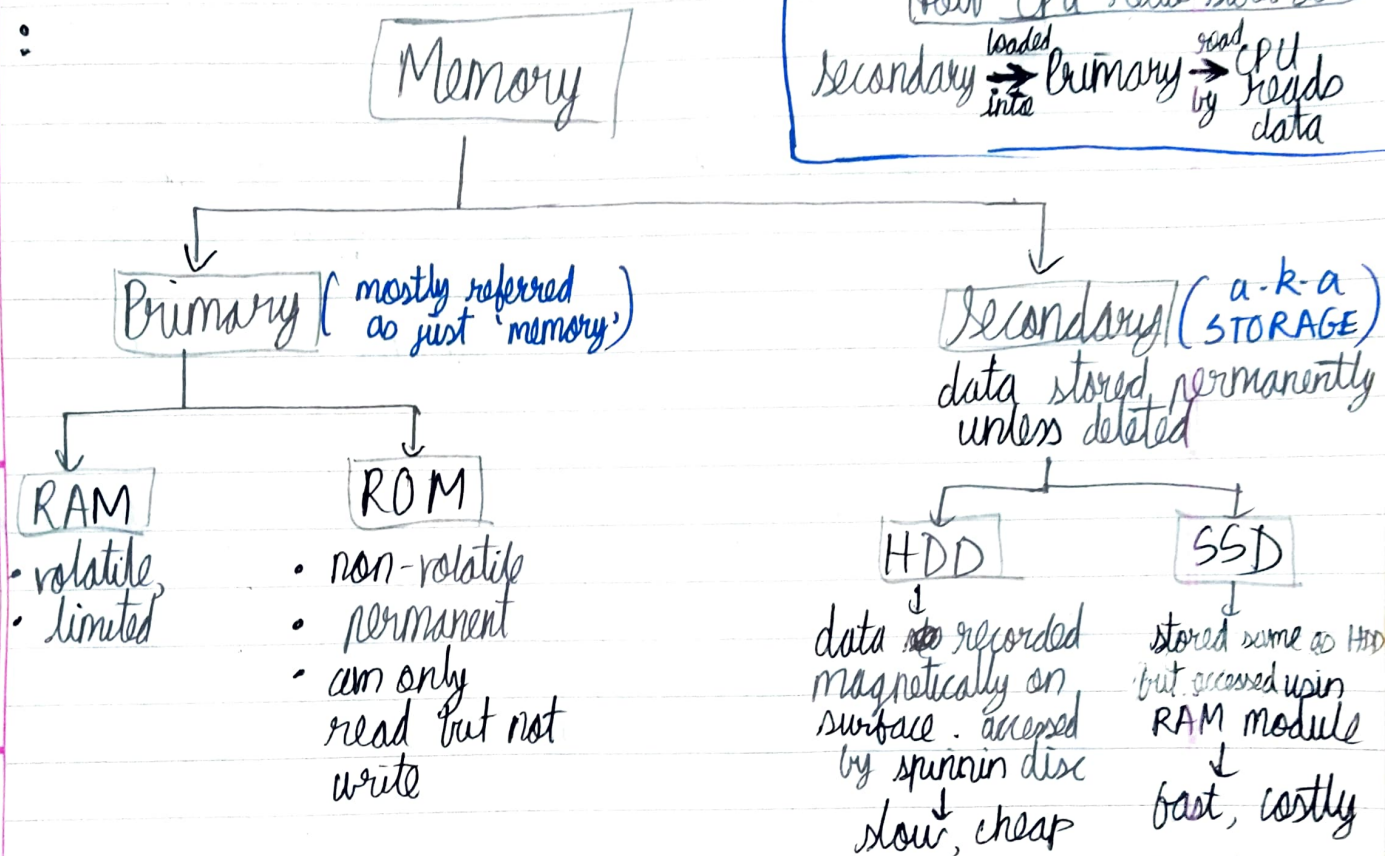 Memory
loaded
secondary → Primary → CPU
into
read
by
reads
data
Primary (mostly referred
as just 'memory')
secondary (a-k-a
STORAGE)
data stored permanently
unless deleted
RAM
• volatile,
• limited
ROM
• non-volatile
• permanent
• can only
read but not
write
HDD
data recorded
magnetically on
surface. accessed
by spinnin disc
slow, cheap
SSD
stored same as HDD
but accessed usin
RAM module
fast, costly